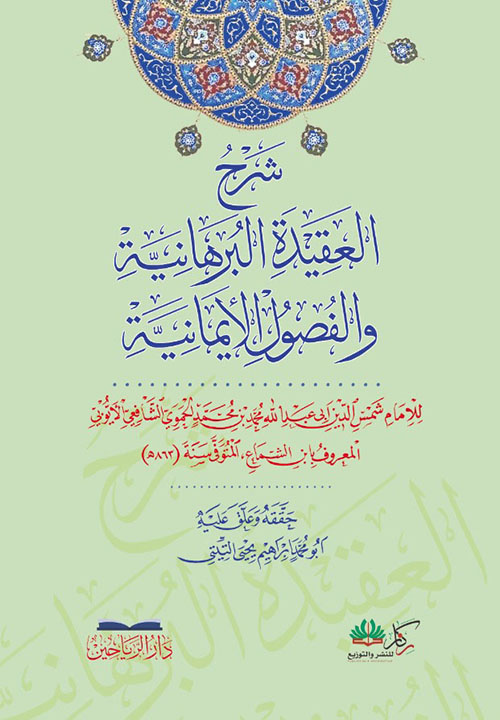 شَرْحُ
العَقِيْدَةِ البُرهَانِيَّةِ
والفُصُولِ الإِيمَانِيَّةِ
للإمَام شَمْسِ الدِّين أبي عبد الله محمَّد بن محمَّد الحموي الشَّافعي الأيُّوبي
المعروف بابن الشمَّاع، المتوفَّى سنَة (٨٦٣هـ)
حَقَّقَهُ وَعَلَّقَ عَلَيْهِ
أبو محمَّد إبراهيم يحيى التيتي
دَارُ الرَّيَاحِين
ركائز
للنشر والتوزيع
شرح
العقيدة البرهانية